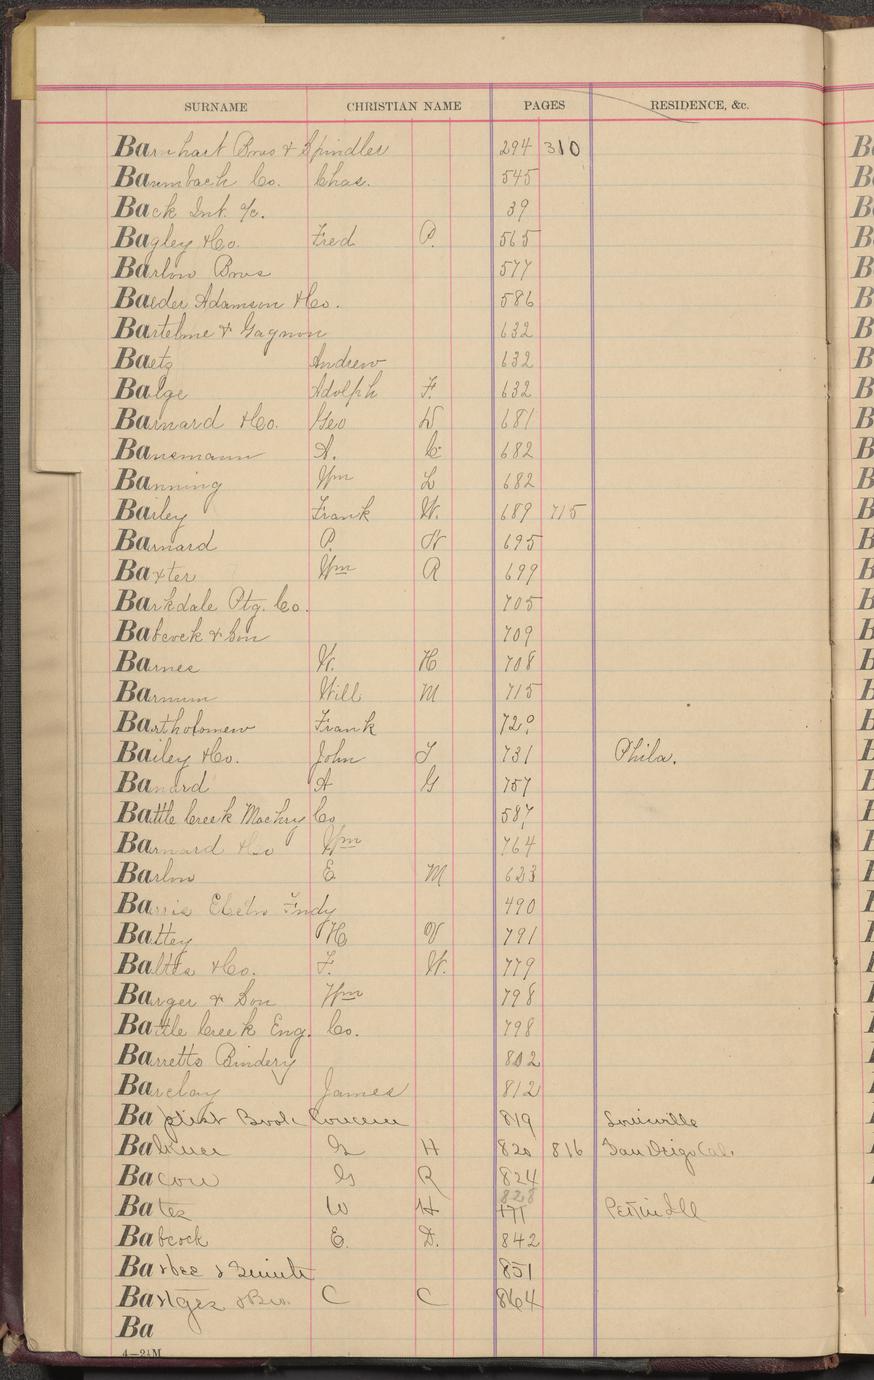 SURNAME CHRISTIAN NAME PAGES RESIDENCE, &c.
Barnhart Bros & Spindler 294 310
Baumbach Co. Chas. 545
Back Int. a/c. 39
Bagley & Co. Fred P. 565
Barlow Bros 577
Baeder Adamson & Co. 586
Bartelme & Gagnon 632
Baetz Andrew 632
Balge Adolph F. 632
Barnard & Co. Geo D 681
Banemann A. C. 682
Banning Wm L 682
Bailey Frank W. 689 715
Barnard P. N 695
Baxter Wm R 699
Barkdale Ptg. Co. 705
Babcock & Son 709
Barnes W. H 708
Barnum Will M 715
Bartholomew Frank 720
Bailey & Co. John T 731 Phila.
Banard A G 757
Battle Creek Machry Co 587
Barnard & Co Wm 764
Barlow E M 623
Barris Electro Fndy 490
Battey H. V 791
Baltes & Co. F. W. 779
Barger & Son Wm 798
Battle Creek Eng. Co. 798
Barretto Bindery 802
Barclay James 812
Baptist Book Concern 819 Louisville
Ba G H 820 816 San Deigo Cal.
Bacon G R 824
828
Bates W H 771
Babcock E. D. 842
Barbee & 851
Bartges & Bro. C C 864
Ba
4—2½M